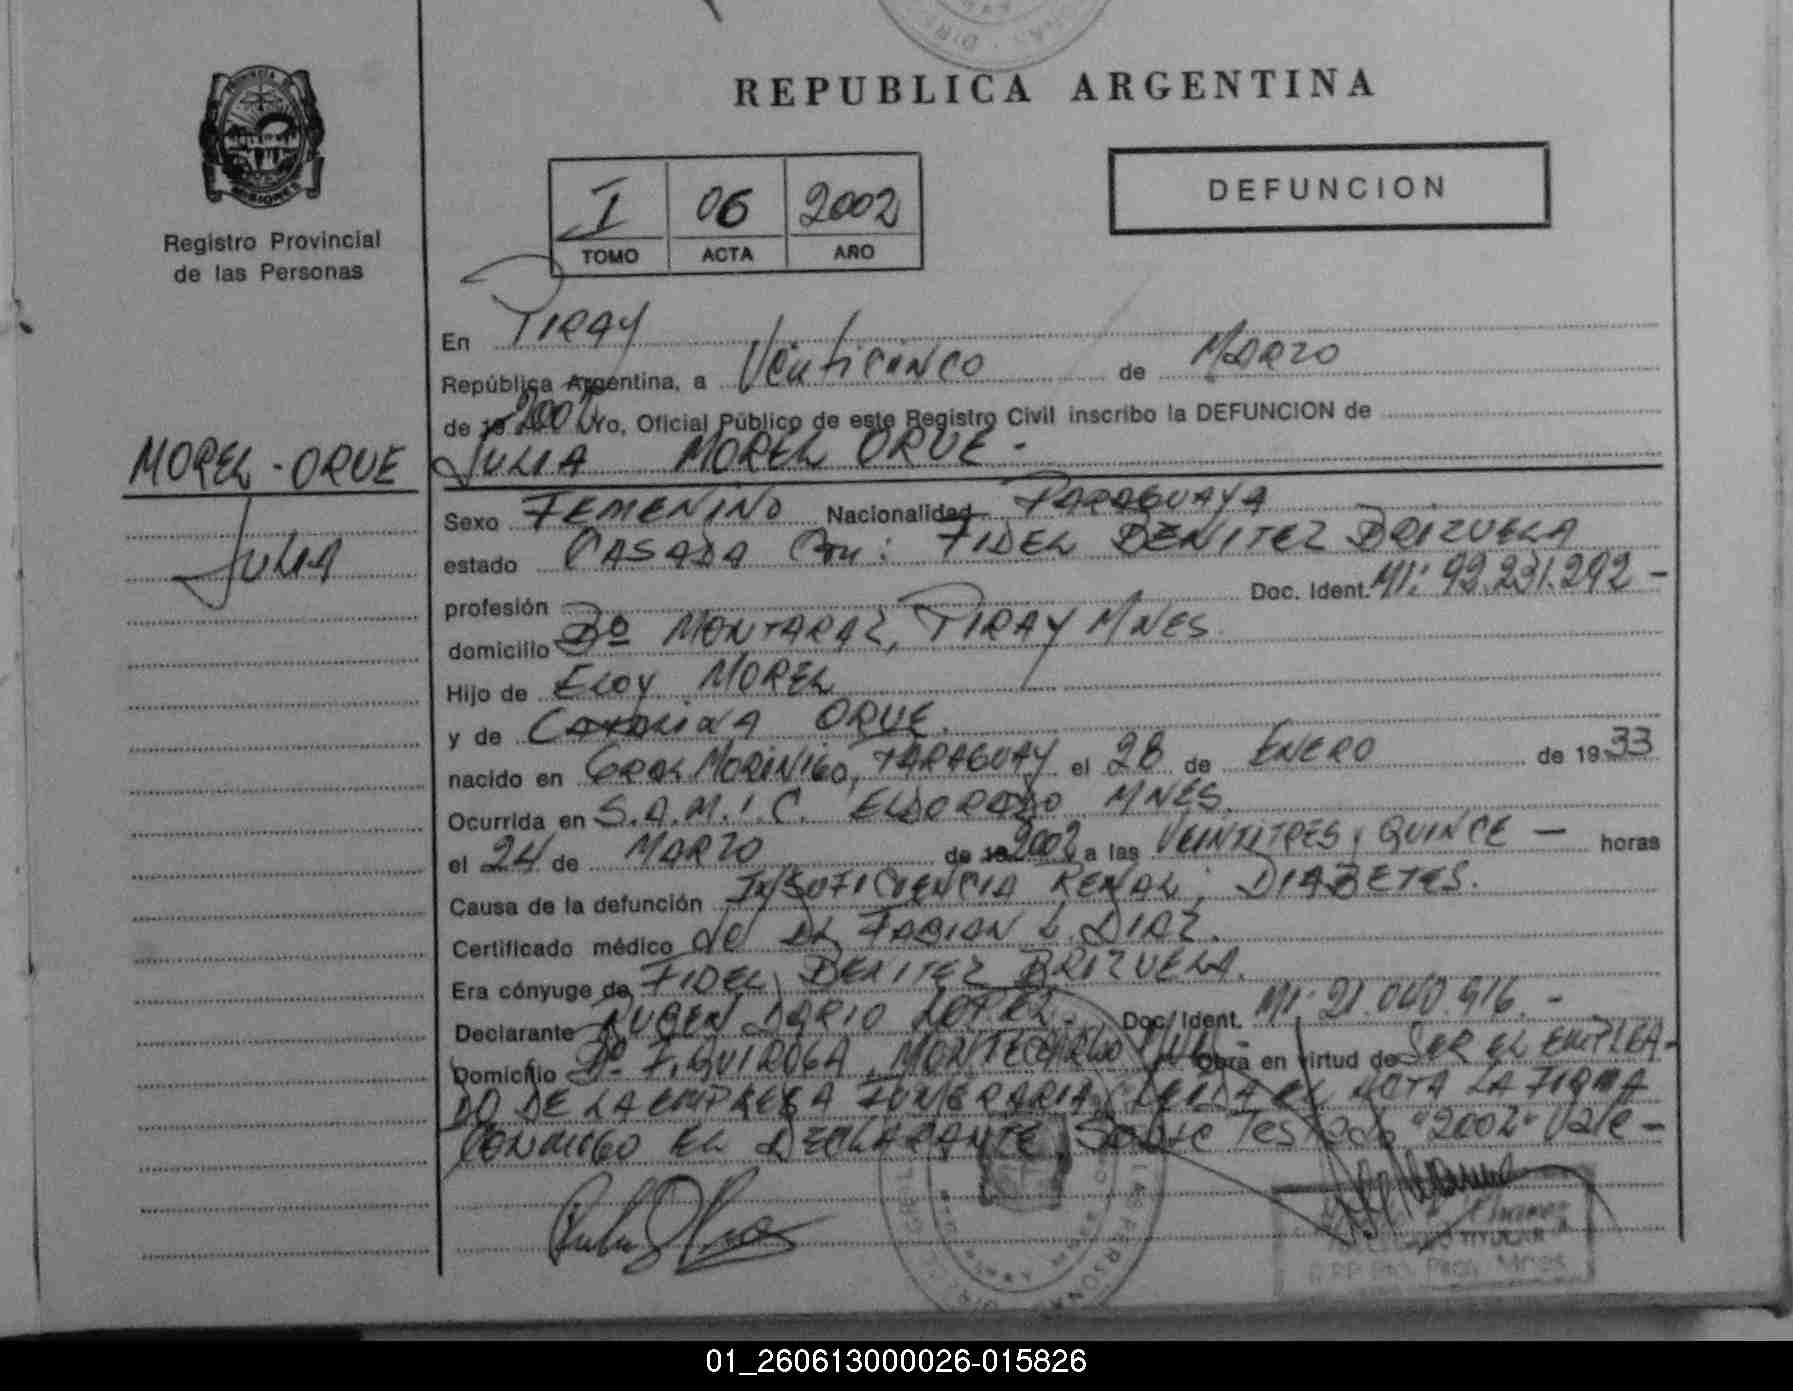 REPUBLICA ARGENTINA
PROVINCIA DE
MISIONES
Registro Provincial
de las Personas
I 06 2002
TOMO ACTA AÑO
DEFUNCION
En PIRAY
República Argentina, a Venticinco de MARZO
de 19 2002 Yo, Oficial Público de este Registro Civil inscribo la DEFUNCION de
JULIA MOREL ORUE -
MOREL - ORUE
JULIA
Sexo FEMENINO Nacionalidad PARAGUAYA
estado CASADA Con: FIDEL BENITEZ BRIZUELA
profesión Doc. Ident. MI: 92.231.292 -
domicilio Bº MONTARAZ, PIRAY MNES.
Hijo de ELOY MOREL
y de CATALINA ORUE.
nacido en GRAL MORINIGO, PARAGUAY el 28 de ENERO de 1933
Ocurrida en S.A.M.I.C. ELDORADO MNES.
el 24 de MARZO de 19 2002 a las VEINTITRES y QUINCE — horas
Causa de la defunción INSUFICIENCIA RENAL, DIABETES.
Certificado médico de DR FABIAN L. DIAZ.
Era cónyuge de FIDEL BENITEZ BRIZUELA.
Declarante RUBEN DARIO LOPEZ. Doc. Ident. MI: 21.040.916. -
Domicilio Bº F. QUIROGA, MONTECARLO Obra en virtud de SER EL EMPLEA-
DO DE LA EMPRESA FUNERARIA LEIDA EL ACTA LA FIRMA
CONMIGO EL DECLARANTE, Sobre Testado "2002" Vale -
TITULAR
01_260613000026-015826